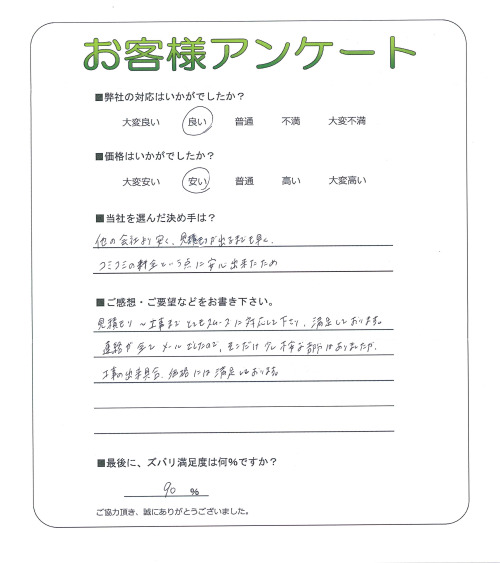 お客様アンケート
■弊社の対応はいかがでしたか？
大変良い 良い 普通 不満 大変不満
■価格はいかがでしたか？
大変安い 安い 普通 高い 大変高い
■当社を選んだ決め手は？
他の会社より安く、見積もりが出るまでも早く、
コミコミの料金という点に安心出来たため
■ご感想・ご要望などをお書き下さい。
見積もり〜工事までとてもスムーズに対応して下さり、満足しております。
連絡が全てメールでしたので、そこだけ少し不安な部分はありましたが、
工事の出来具合、価格には満足しております。
■最後に、ズバリ満足度は何%ですか？
90 %
ご協力頂き、誠にありがとうございました。